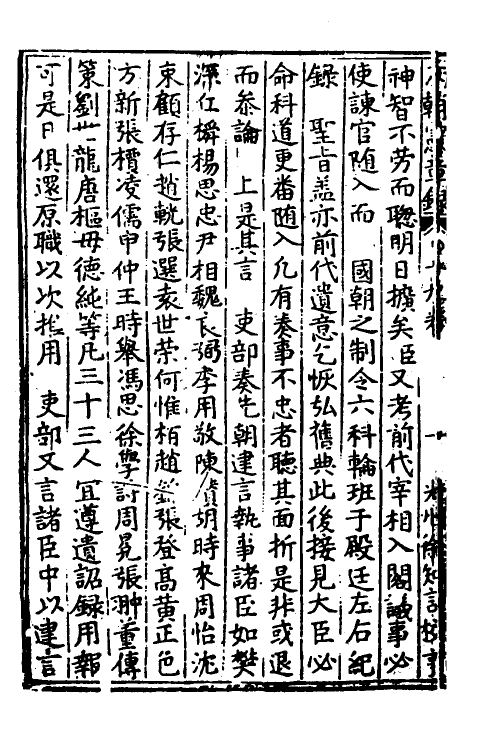 神智不劳而聦明日擴矣臣又考前代宰相入閣議事必
使諫官随入而　國朝之制令六科輪班于殿廷左右紀
録　聖旨盖亦前代遺意乞恢弘舊典此後接見大臣必
命科道更畨随入凢有奏事不忠者聽其面折是非或退
而叅論　上是其言　吏部奏先朝建言執事諸臣如樊
深仁檘楊思忠尹相魏良弼李用敬陳瓚胡時來周怡沈
束顧存仁趙輗張選袁世荣何惟栢趙　張登髙黄正色
方新張檟凌儒申仲王時舉馮思徐學詩周冕張翀董傳
策劉世龍唐樞毋德純等凡三十三人冝遵遺詔録用報
可是日俱還原職以次推用　吏部又言諸臣中以建言